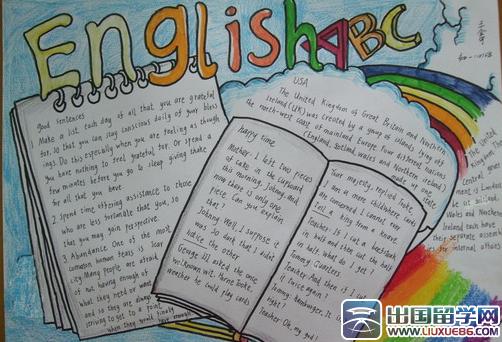 English ABC
good sentences
Make a list each day of all that you are grateful
for, so that you can stay conscious daily of your bless
ings. Do this especially when you are feeling as though
you have nothing to feel grateful for. Or spend a
few minutes before you go to sleep giving thanks
for all that you have
2 spend time offering assistance to those
who are less fortunate than you, so
that you may gain perspective.
3 Abundance One of the most
common human fears is scar
city. Many people are afraid
of not having enough of
what they need or want
and so they are always
striving to get to a point
when they would finally enough
happy time
Mother: I left two pieces
of cake in the cupboard
this morning, Johnny, and
now there is only one
piece. Can you explain
that?
Johnny: Well, I suppose it
was so dark that I didn't
notice the other
George III asked the one
wellknown wit, Horne Tooke,
weather he could play cards
USA
The United Kingdom of Great Britain and Northern
Ireland (UK) was created by a group of islands lying off
the north-west coast of mainland Europe. Four different nations
(England, Scotland, Wales and Northern Ireland)
made up one
state
Your majesty, replied Tooke,
I am a mere child where cards
are concerned I cannot even
tell a king from a knave.
Teacher: If I cut a beefsteak
in half and then cut the half
in half, what do I get?
Tommy: Quarters.
Teacher: And then if I cut
it twice again?
Tommy: Hamburger.
Teacher: Oh, my god!
The United
central
ment is
Wales and
Northern
Ireland each have
their separate assemb
lies for internal affairs
出国留学网
WWW.LIUXUE86.COM